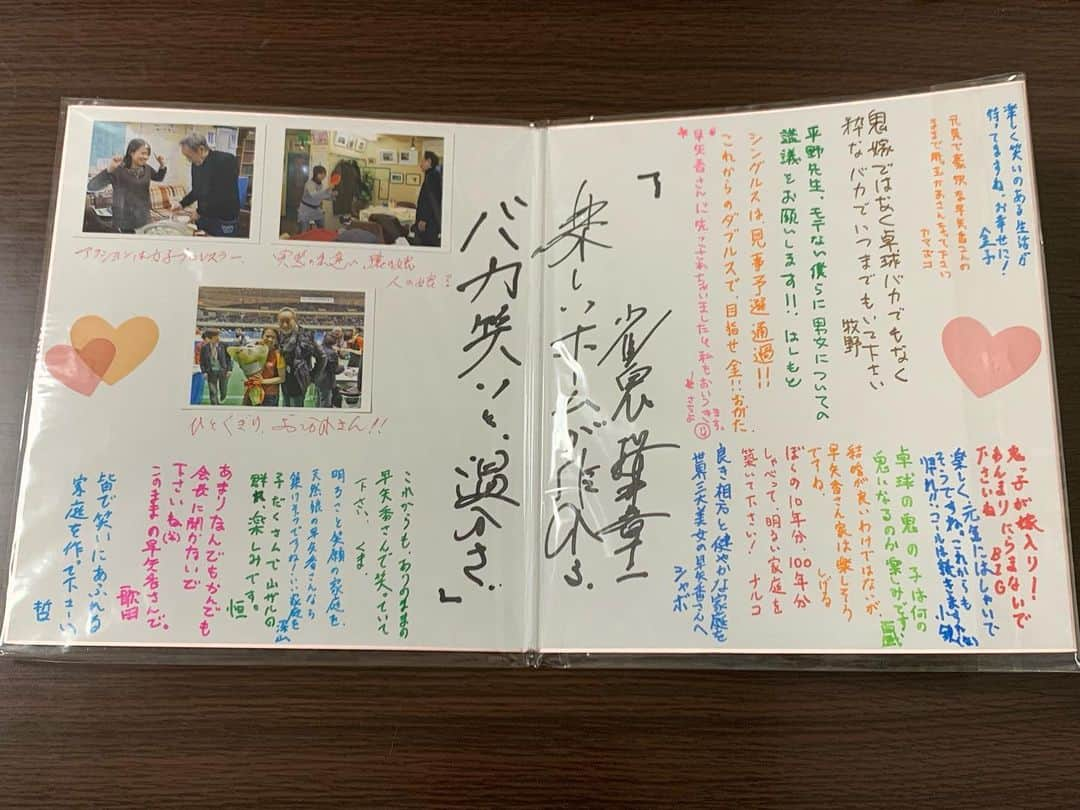 楽しく笑いのある生活が
待ってますね。お幸せに!
金子
元気で豪快な早矢香さんの
ままで
下さい
鬼嫁ではなく卓球バカでもなく
粋なバカでいつまでもいて下さい
牧野
平野先生、モテない僕らに男女についての
講議をお願いします!!はしもと
シングルスは見事予選通過!!
これからのダブルスで、目指せ金!!おがた
早矢香さんに先
私も
鬼っ子が嫁入り!
あんまりにらまないで
下さいね BIG
楽しく、元気にはしゃいで
そうですね。これからも
コールは続きますか
卓球の鬼の子は何の
鬼になるのか楽しみです。
結婚が良いわけではないが
早矢香さん家は楽しそう
ですね。 しげる
ぼくらの10年分、100年分
しゃべって、明るい家庭を
築いて下さい! ナルコ
良き相方と健やかな家庭を
世界三大美女の早矢香さんへ
シャボ
「楽しいホームが
バカ笑いと、
」
アクションは女子プロレスラー。
人の嫁
ひとくぎり、おつかれさん!!
これからも、ありのままの
早矢香さんで笑っていて
下さい。 くま
明るさと笑顔の家庭を。
天然娘の早矢香さんなら
いい家庭を
深山
子だくさんで山ザルの
群れ楽しみです。
恒
あまりなんでもかんでも
会長に聞かないで
下さいね(笑)
このままの早矢香さんで。
歌田
皆で笑いにあふれる
家庭を作って下さい
哲